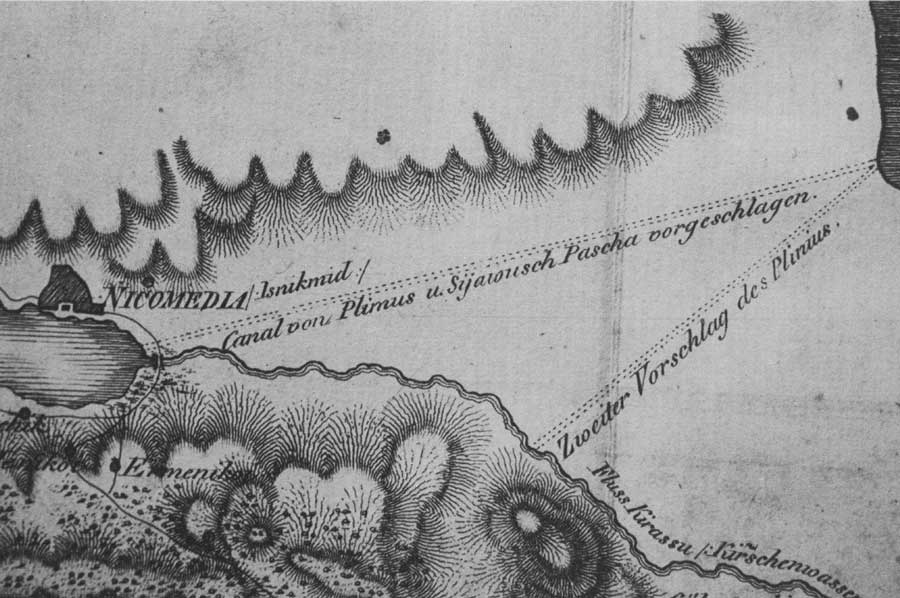 NICOMEDIA /: Isnikmid :/
Canal von Plinius u. Sijawusch Pascha vorgeschlagen.
Zweiter Vorschlag des Plinius.
Fluss Kirassu /: Kirschenwasser
Ermenik